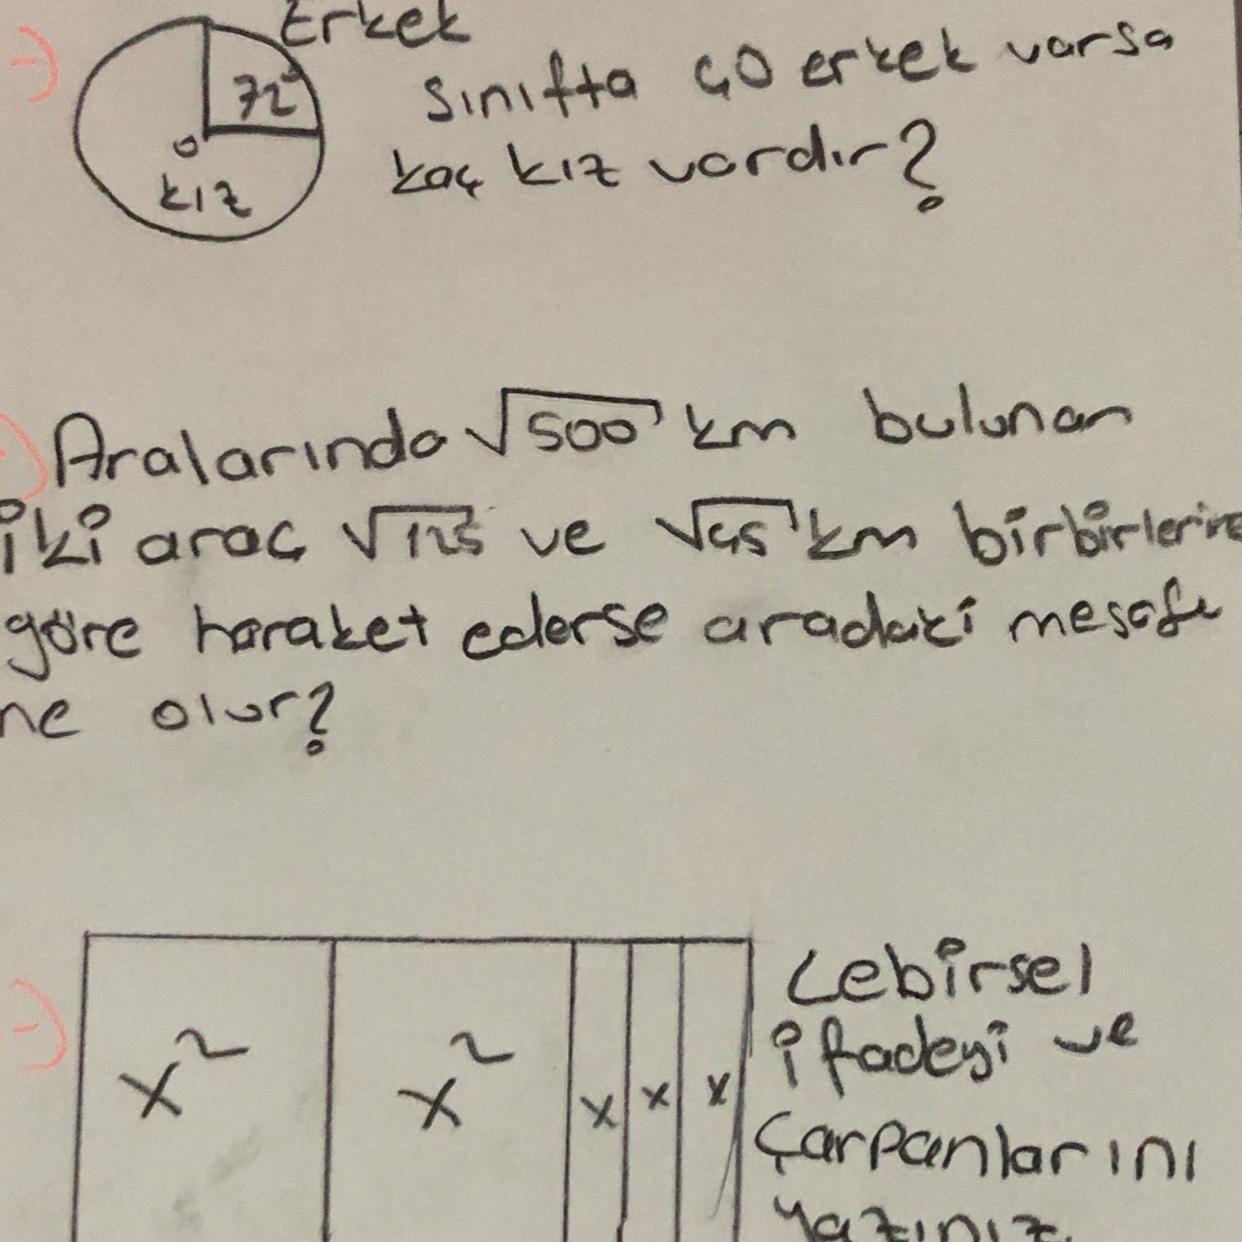 Erkek
72°
kız
Sınıfta 40 erkek varsa
kaç kız vardır?
Aralarında √500 km bulunan
iki araç √125 ve √45 km birbirlerine
göre haraket ederse aradaki mesafe
ne olur?
x² x² x x x
Cebirsel
ifadeyi ve
Çarpanlarını
yazınız.